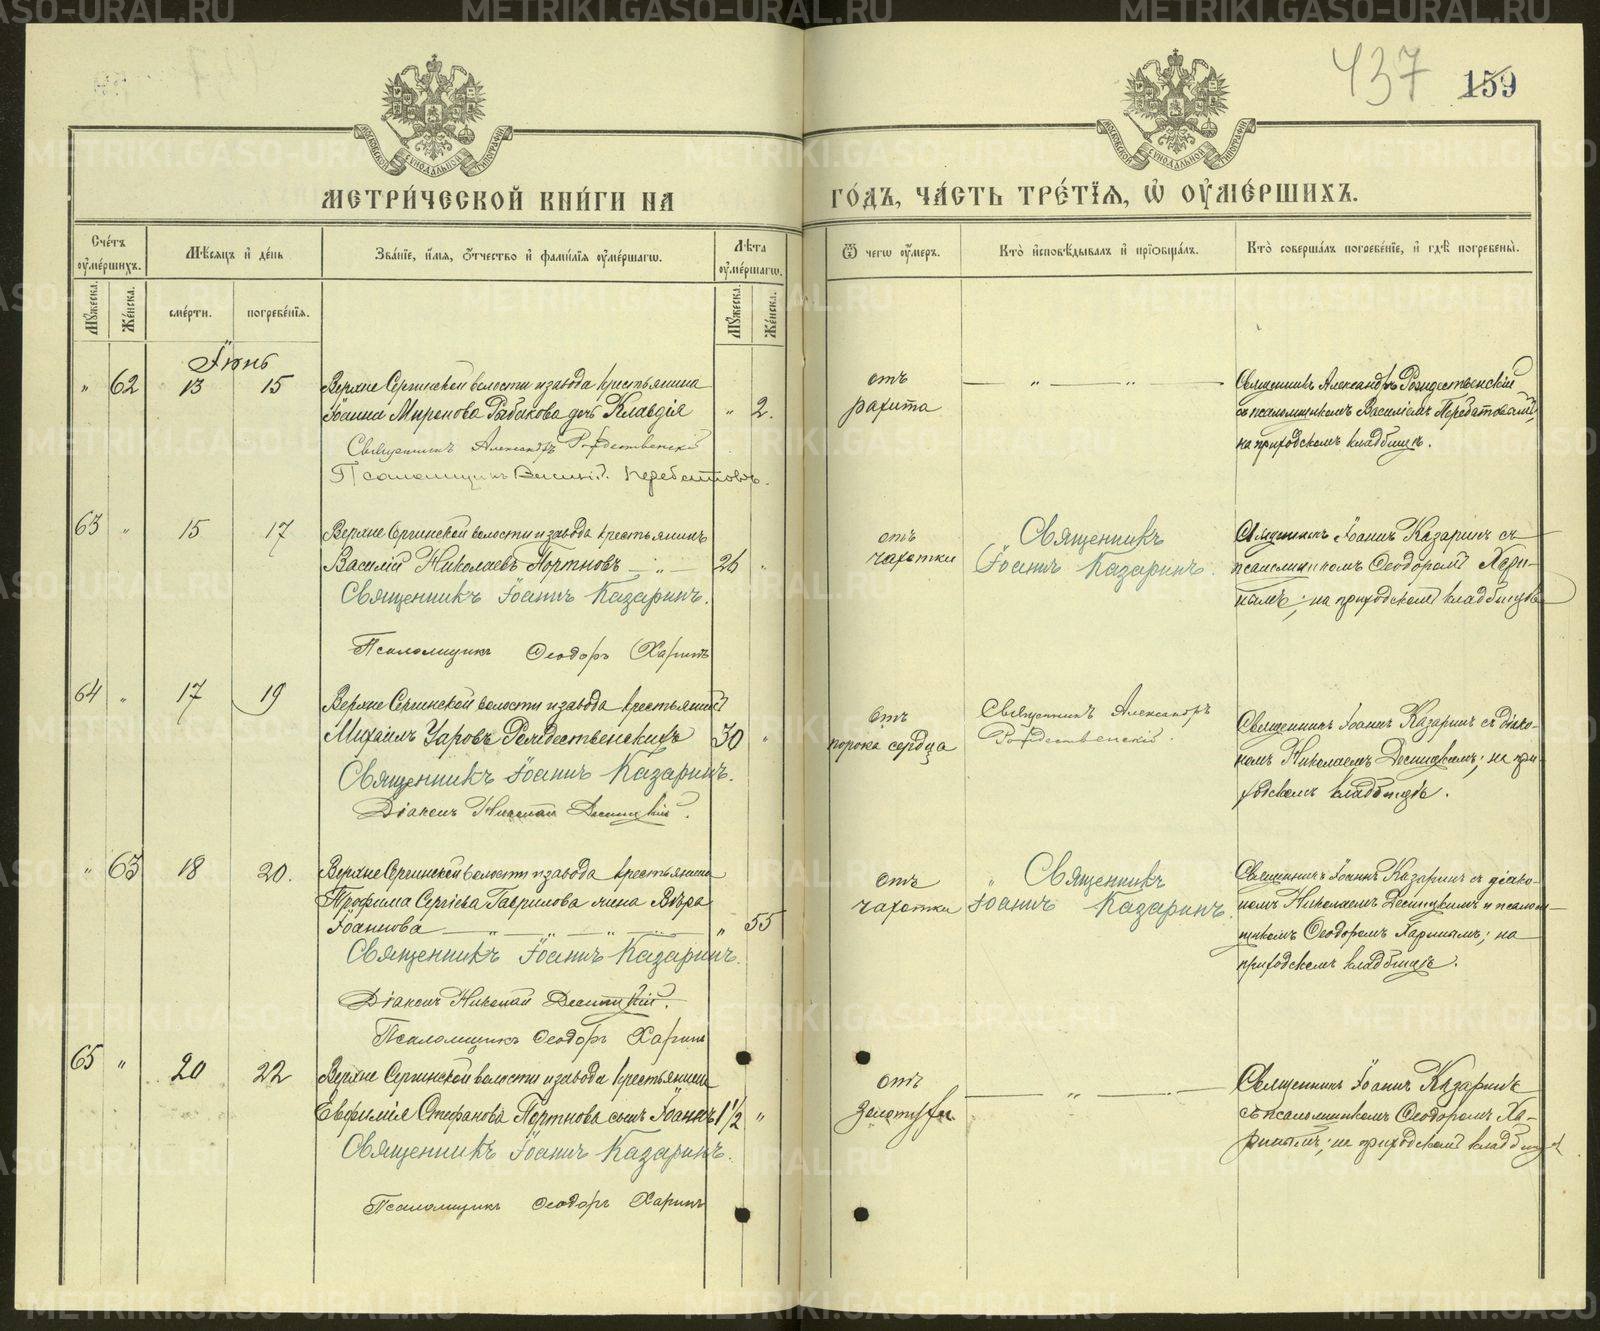 437 159
МЕТРИ́ЧЕСКОЙ КНИ́ГИ НА ГО́ДЪ, ЧА́СТЬ ТРЕ́ТЇЯ, Ѡ ОУМЕ́РШИХЪ.
Сче́тъ оуме́ршихъ.
Мѣ́сяцъ и де́нь
Зва́нїе, и́мя, ѻ́тчество и фами́лїя оуме́ршагѡ.
Лѣ́та оуме́ршагѡ.
Ѿ чегѡ оу́меръ.
Кто̀ и҆сповѣ́дывалъ и҆ прїѡбща́лъ.
Кто̀ соверша́лъ погребе́нїе, и҆ гдѣ̀ погребены̀.
Мꙋ́жеска. Же́нска.
сме́рти. погребе́нїя.
Мꙋ́жеска. Же́нска.
Іюнь
" 62 13 15
Верхне Сергинской волости и завода крестьянина
Іоанна Миронова Рябикова дочь Клавдія " 2.
Священникъ Александръ Рождественскій
Псаломщикъ Василій Перебатовъ.
отъ
рахита
— " — " —
Священникъ Александръ Рождественскій
съ псаломщикомъ Василіемъ Перебатовымъ,
на приходскомъ кладбищѣ.
63 " 15 17
Верхне Сергинской волости и завода крестьянинъ
Василій Николаевъ Портновъ — " — 26 "
Священникъ Іоаннъ Казаринъ.
Псаломщикъ Ѳеодоръ Харинъ
отъ
чахотки
Священникъ
Іоаннъ Казаринъ.
Священникъ Іоаннъ Казаринъ съ
псаломщикомъ Ѳеодоромъ Хари-
нымъ; на приходскомъ кладбищѣ
64 " 17 19
Верхне Сергинской волости и завода крестьянинъ
Михаилъ Уаровъ Рождественскихъ 30 "
Священникъ Іоаннъ Казаринъ.
Діаконъ Николай Десницкій.
отъ
порока сердца
Священникъ Александръ
Рождественскій.
Священникъ Іоаннъ Казаринъ съ діако-
номъ Николаемъ Десницкимъ; на при-
ходскомъ кладбищѣ.
" 63 18 20.
Верхне Сергинской волости и завода крестьянина
Трофима Сергіева Гаврилова жена Вѣра
Іоаннова — " — " — " — " 55
Священникъ Іоаннъ Казаринъ.
Діаконъ Николай Десницкій.
Псаломщикъ Ѳеодоръ Харинъ
отъ
чахотки
" Священникъ
Іоаннъ Казаринъ.
Священникъ Іоаннъ Казаринъ съ діако-
номъ Николаемъ Десницкимъ и псалом-
щикомъ Ѳеодоромъ Харинымъ; на
приходскомъ кладбищѣ.
65 " 20 22
Верхне Сергинской волости и завода крестьянина
Евфимія Стефанова Портнова сынъ Іоаннъ 1 1/2 "
Священникъ Іоаннъ Казаринъ.
Псаломщикъ Ѳеодоръ Харинъ
отъ
золотухи
— " — " —
Священникъ Іоаннъ Казаринъ
съ псаломщикомъ Ѳеодоромъ Ха-
ринымъ; на приходскомъ кладбищѣ